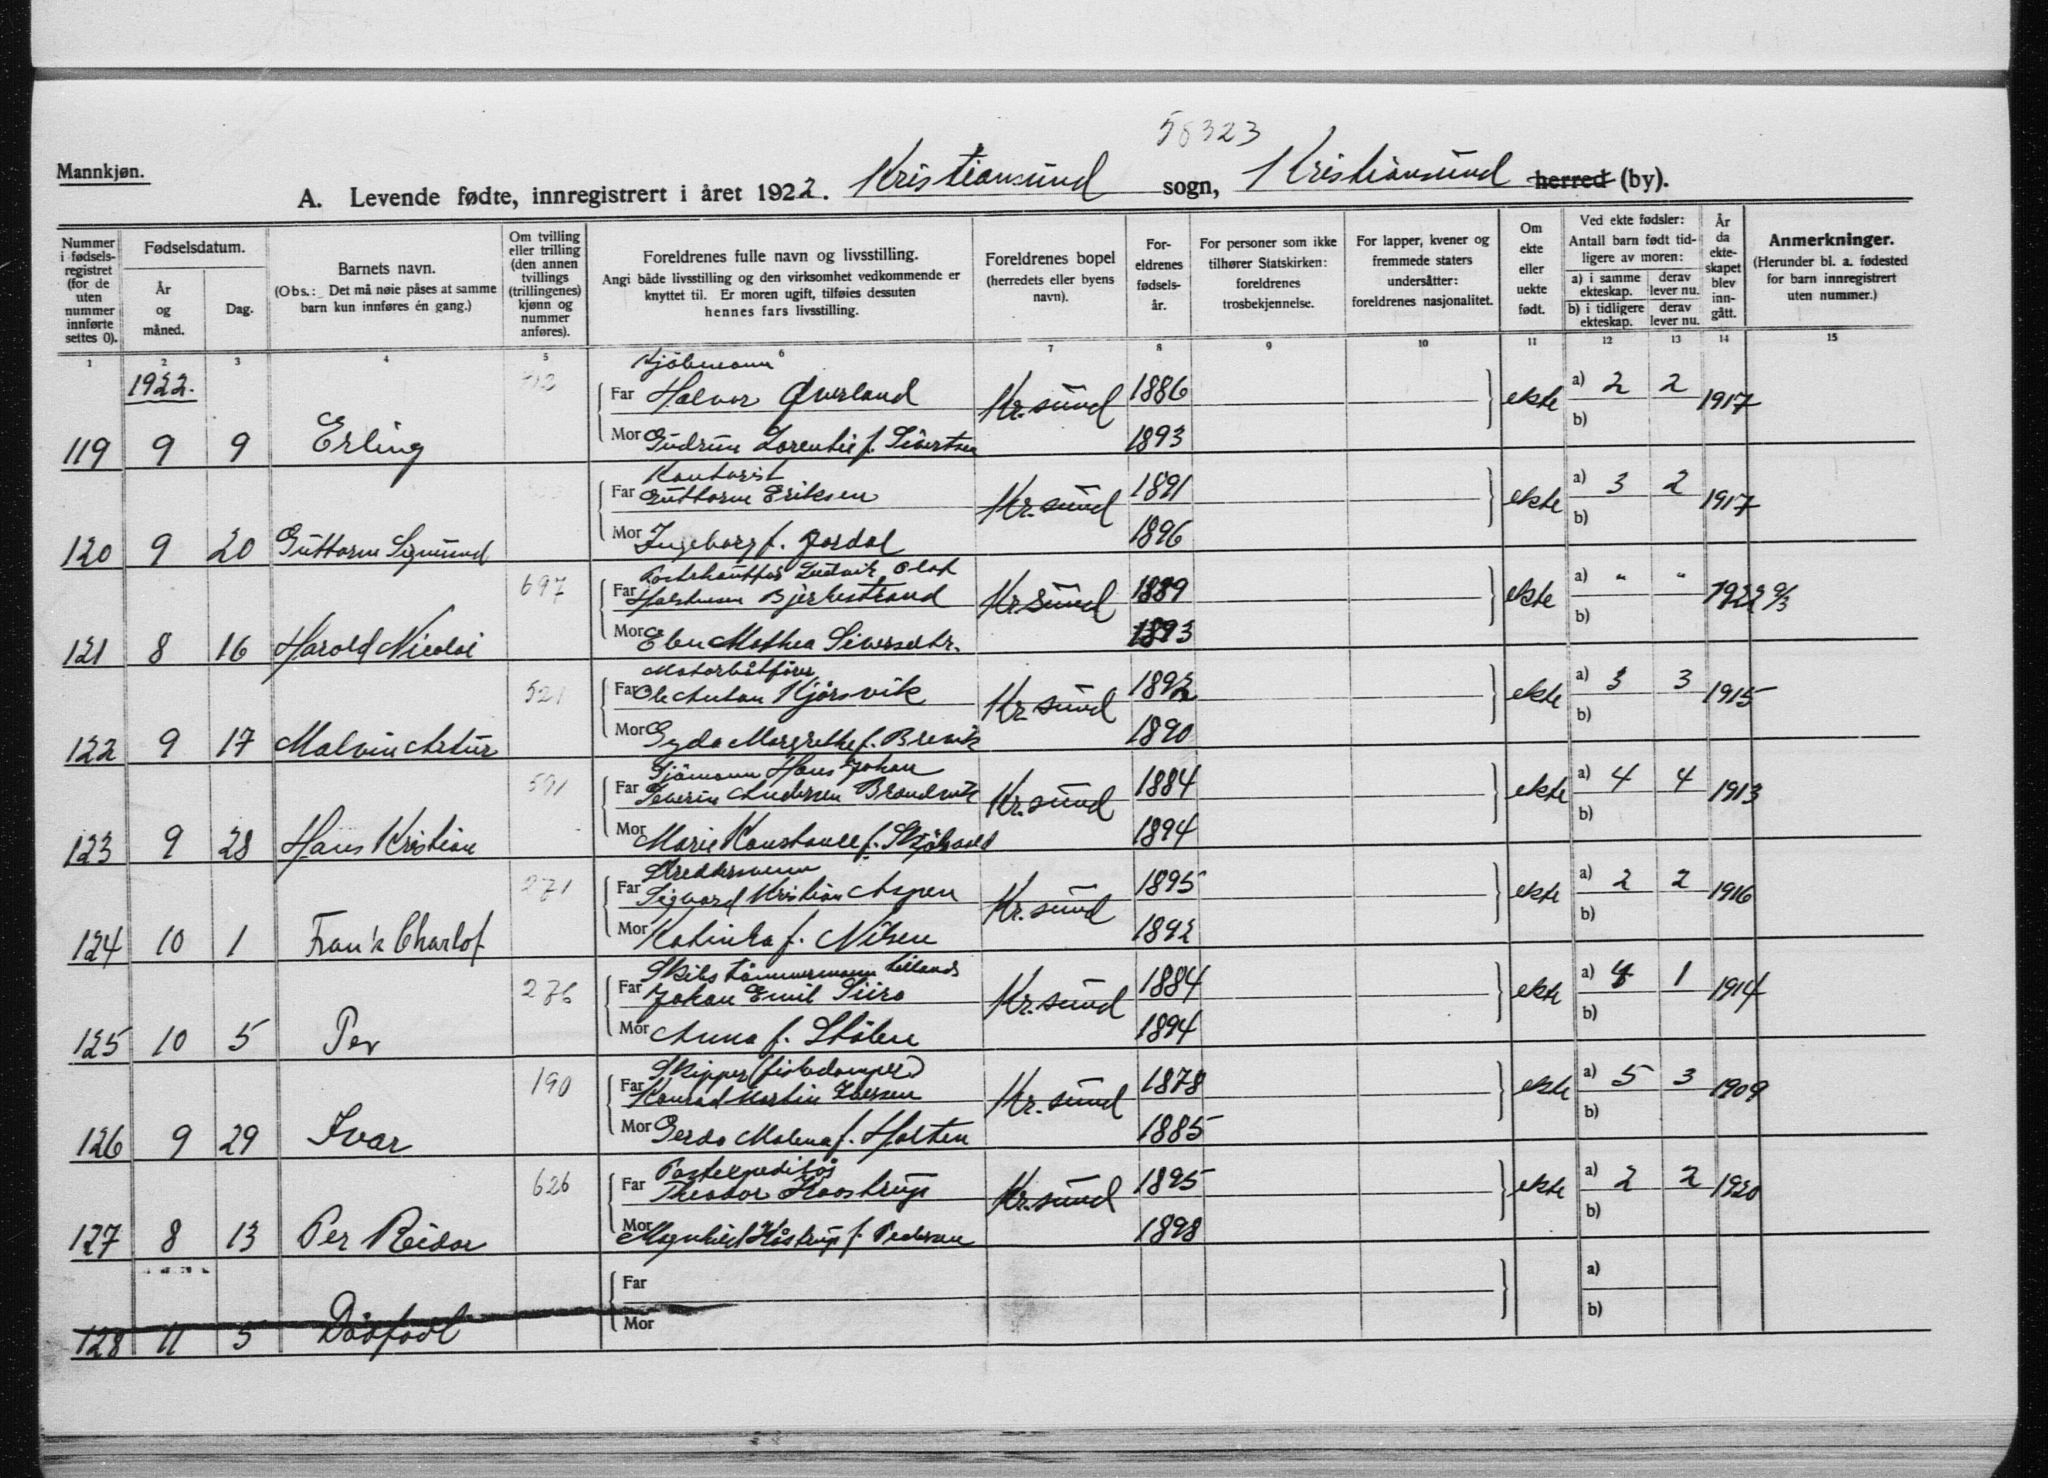 58323
Mannkjøn.
A. Levende fødte, innregistrert i året 1922. Kristiansund sogn, Kristiansund herred (by).
Nummer i fødselsregistret (for de uten nummer innførte settes 0).
Fødselsdatum.
År og måned.
Dag.
Barnets navn.
(Obs.: Det må nøie påses at samme barn kun innføres én gang.)
Om tvilling eller trilling (den annen tvillings (trillingenes) kjønn og nummer anføres).
Foreldrenes fulle navn og livsstilling.
Angi både livsstilling og den virksomhet vedkommende er knyttet til. Er moren ugift, tilføies dessuten hennes fars livsstilling.
Foreldrenes bopel (herredets eller byens navn).
Foreldrenes fødselsår.
For personer som ikke tilhører Statskirken: foreldrenes trosbekjennelse.
For lapper, kvener og fremmede staters undersåtter: foreldrenes nasjonalitet.
Om ekte eller uekte født.
Ved ekte fødsler:
Antall barn født tidligere av moren:
a) i samme ekteskap. derav lever nu.
b) i tidligere ekteskap. derav lever nu.
År da ekteskapet blev inngått.
Anmerkninger.
(Herunder bl. a. fødested for barn innregistrert uten nummer.)
1 2 3 4 5 6 7 8 9 10 11 12 13 14 15
1922.
Kjöbmann
Far Halvor Øverland Kr.sund 1886 ekte a) 2 2 1917
119 9 9 Erling Mor Gudrun Lorentse f. Sivertsen 1893 b)
Kontorist
Far Guttorm Eriksen Kr.sund 1891 ekte a) 3 2 1917
120 9 20 Guttorm Sigmund Mor Ingeborg f. Jordal 1896 b)
697 Ludvik Olaf
Far Bjerkestrand Kr.sund 1889 ekte a) " " 1922 9/3
121 8 16 Harold Nicolai Mor Elen Mathea 1893 b)
521 Motorbåtfører
Far Ole Anton Kjörsvik Kr.sund 1892 ekte a) 3 3 1915
122 9 17 Malvin Artur Mor Gyda Margrethe f. Brevik 1890 b)
591 Sjömann Hans Johan
Far Severin Andersen Brandvik Kr.sund 1884 ekte a) 4 4 1913
123 9 28 Hans Kristian Mor Marie Konstance f. 1894 b)
271 Skreddersvenn
Far Sigvard Kristian Aspen Kr.sund 1895 ekte a) 2 2 1916
124 10 1 Frank Charlof Mor Katinka f. Nilsen 1892 b)
276 Skibstömmermann
Far Johan Emil Siiro Kr.sund 1884 ekte a) 4 1 1914
125 10 5 Per Mor Anna f. Stölen 1894 b)
190 Skipper (fiskedamper)
Far Konrad Martin Iversen Kr.sund 1878 ekte a) 5 3 1909
126 9 29 Ivar Mor Gerda Malena f. Holten 1885 b)
626 Postexpeditör
Far Theodor Kaastrup Kr.sund 1895 ekte a) 2 2 1920
127 8 13 Per Reidar Mor Magnhild Kåstrup f. Pedersen 1898 b)
Far a)
128 11 5 Dödfödt Mor b)